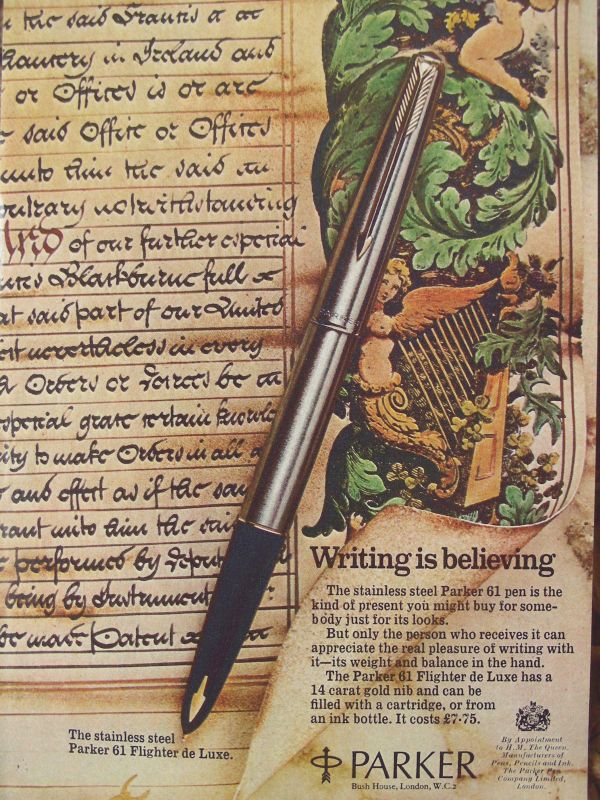 the said
in Ireland and
or Offices is or are
said Office or Offices
unto him the said
notwithstanding
And of our further especial
Blackburne full
said part of our United
nevertheless in every
Orders or be
grace certain
to make Orders in all
and effect as if the
unto him the
performed by
being by Instrument
be made Patent
PARKER
Writing is believing
The stainless steel Parker 61 pen is the
kind of present you might buy for some-
body just for its looks.
But only the person who receives it can
appreciate the real pleasure of writing with
it—its weight and balance in the hand.
The Parker 61 Flighter de Luxe has a
14 carat gold nib and can be
filled with a cartridge, or from
an ink bottle. It costs £7·75.
The stainless steel
Parker 61 Flighter de Luxe.
PARKER
Bush House, London, W.C.2
By Appointment
to H.M. The Queen,
Manufacturers of
Pens, Pencils and Ink.
The Parker Pen
Company Limited,
London.